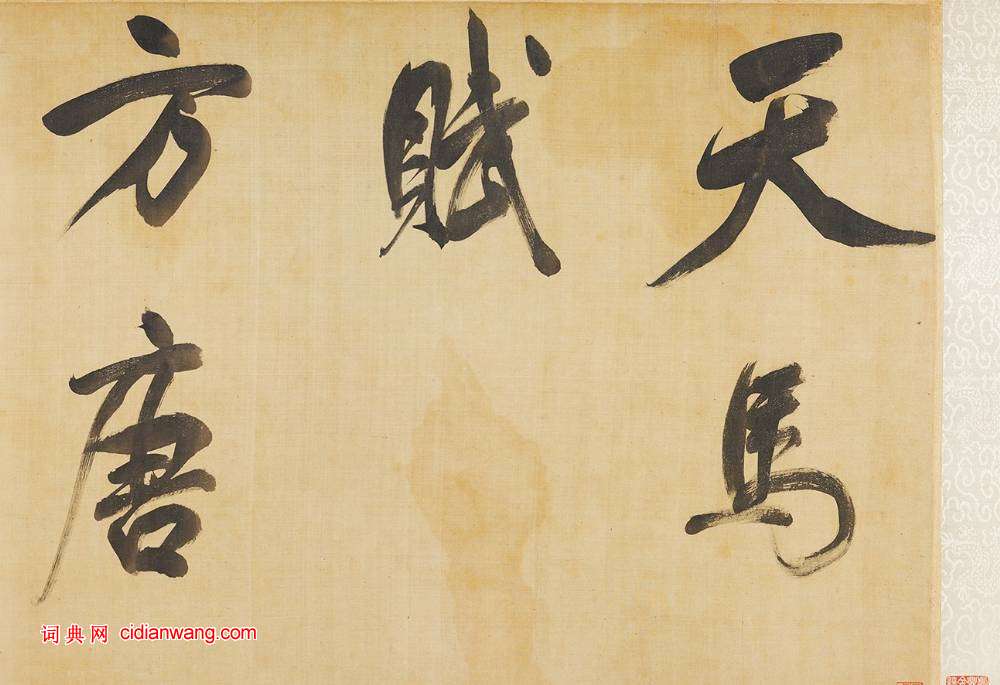 天馬
賦
方唐
词典网 cidianwang.com